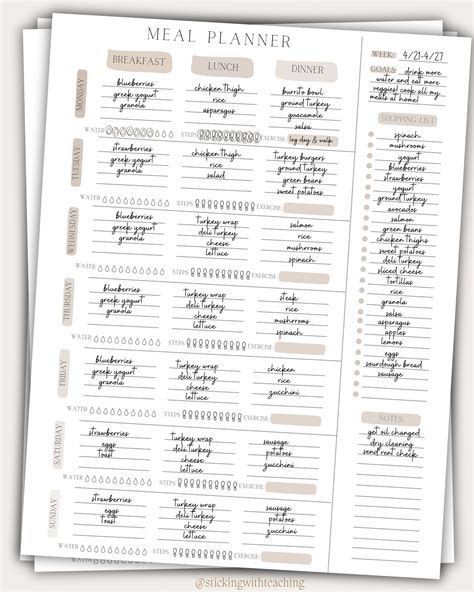 MEAL PLANNER
BREAKFAST
LUNCH
DINNER
MONDAY
blueberries
greek yogurt
granola
chicken thigh
rice
asparagus
burrito bowl
ground turkey
guacamole
salsa
WATER
STEPS
EXERCISE
leg day & walk
TUESDAY
strawberries
greek yogurt
granola
chicken thigh
rice
salad
turkey burgers
ground turkey
green beans
sweet potatoes
WATER
STEPS
EXERCISE
WEDNESDAY
blueberries
greek yogurt
granola
turkey wrap
deli turkey
cheese
lettuce
salmon
rice
mushrooms
spinach
WATER
STEPS
EXERCISE
THURSDAY
blueberries
greek yogurt
granola
turkey wrap
deli turkey
cheese
lettuce
steak
rice
mushrooms
spinach
WATER
STEPS
EXERCISE
FRIDAY
blueberries
greek yogurt
granola
turkey wrap
deli turkey
cheese
lettuce
chicken
rice
zucchini
WATER
STEPS
EXERCISE
SATURDAY
strawberries
eggs
toast
turkey wrap
deli turkey
cheese
lettuce
sausage
potatoes
zucchini
WATER
STEPS
EXERCISE
SUNDAY
strawberries
eggs
toast
turkey wrap
deli turkey
cheese
lettuce
sausage
potatoes
zucchini
WATER
STEPS
EXERCISE
WEEK: 4/21-4/27
GOALS: drink more
water and eat more
veggies! cook all my
meals at home!
SHOPPING LIST
spinach
mushrooms
yogurt
blueberries
strawberries
ground turkey
avocados
salmon
green beans
chicken thighs
sweet potatoes
deli turkey
sliced cheese
tortillas
rice
granola
salsa
asparagus
apples
lemons
eggs
sourdough bread
sausage
NOTES:
get oil changed
dry cleaning
send rent check
@stickingwithteaching